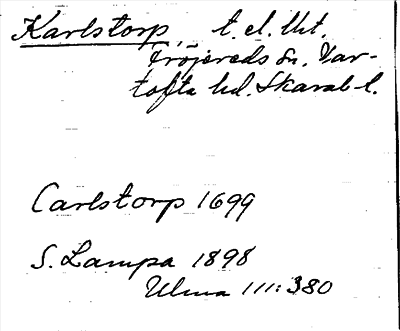 Karlstorp, t. el. lht.
Fröjereds sn. Var-
tofta hd. Skarab. l.
Carlstorp 1699
S. Lampa 1898
Ulma 111:380